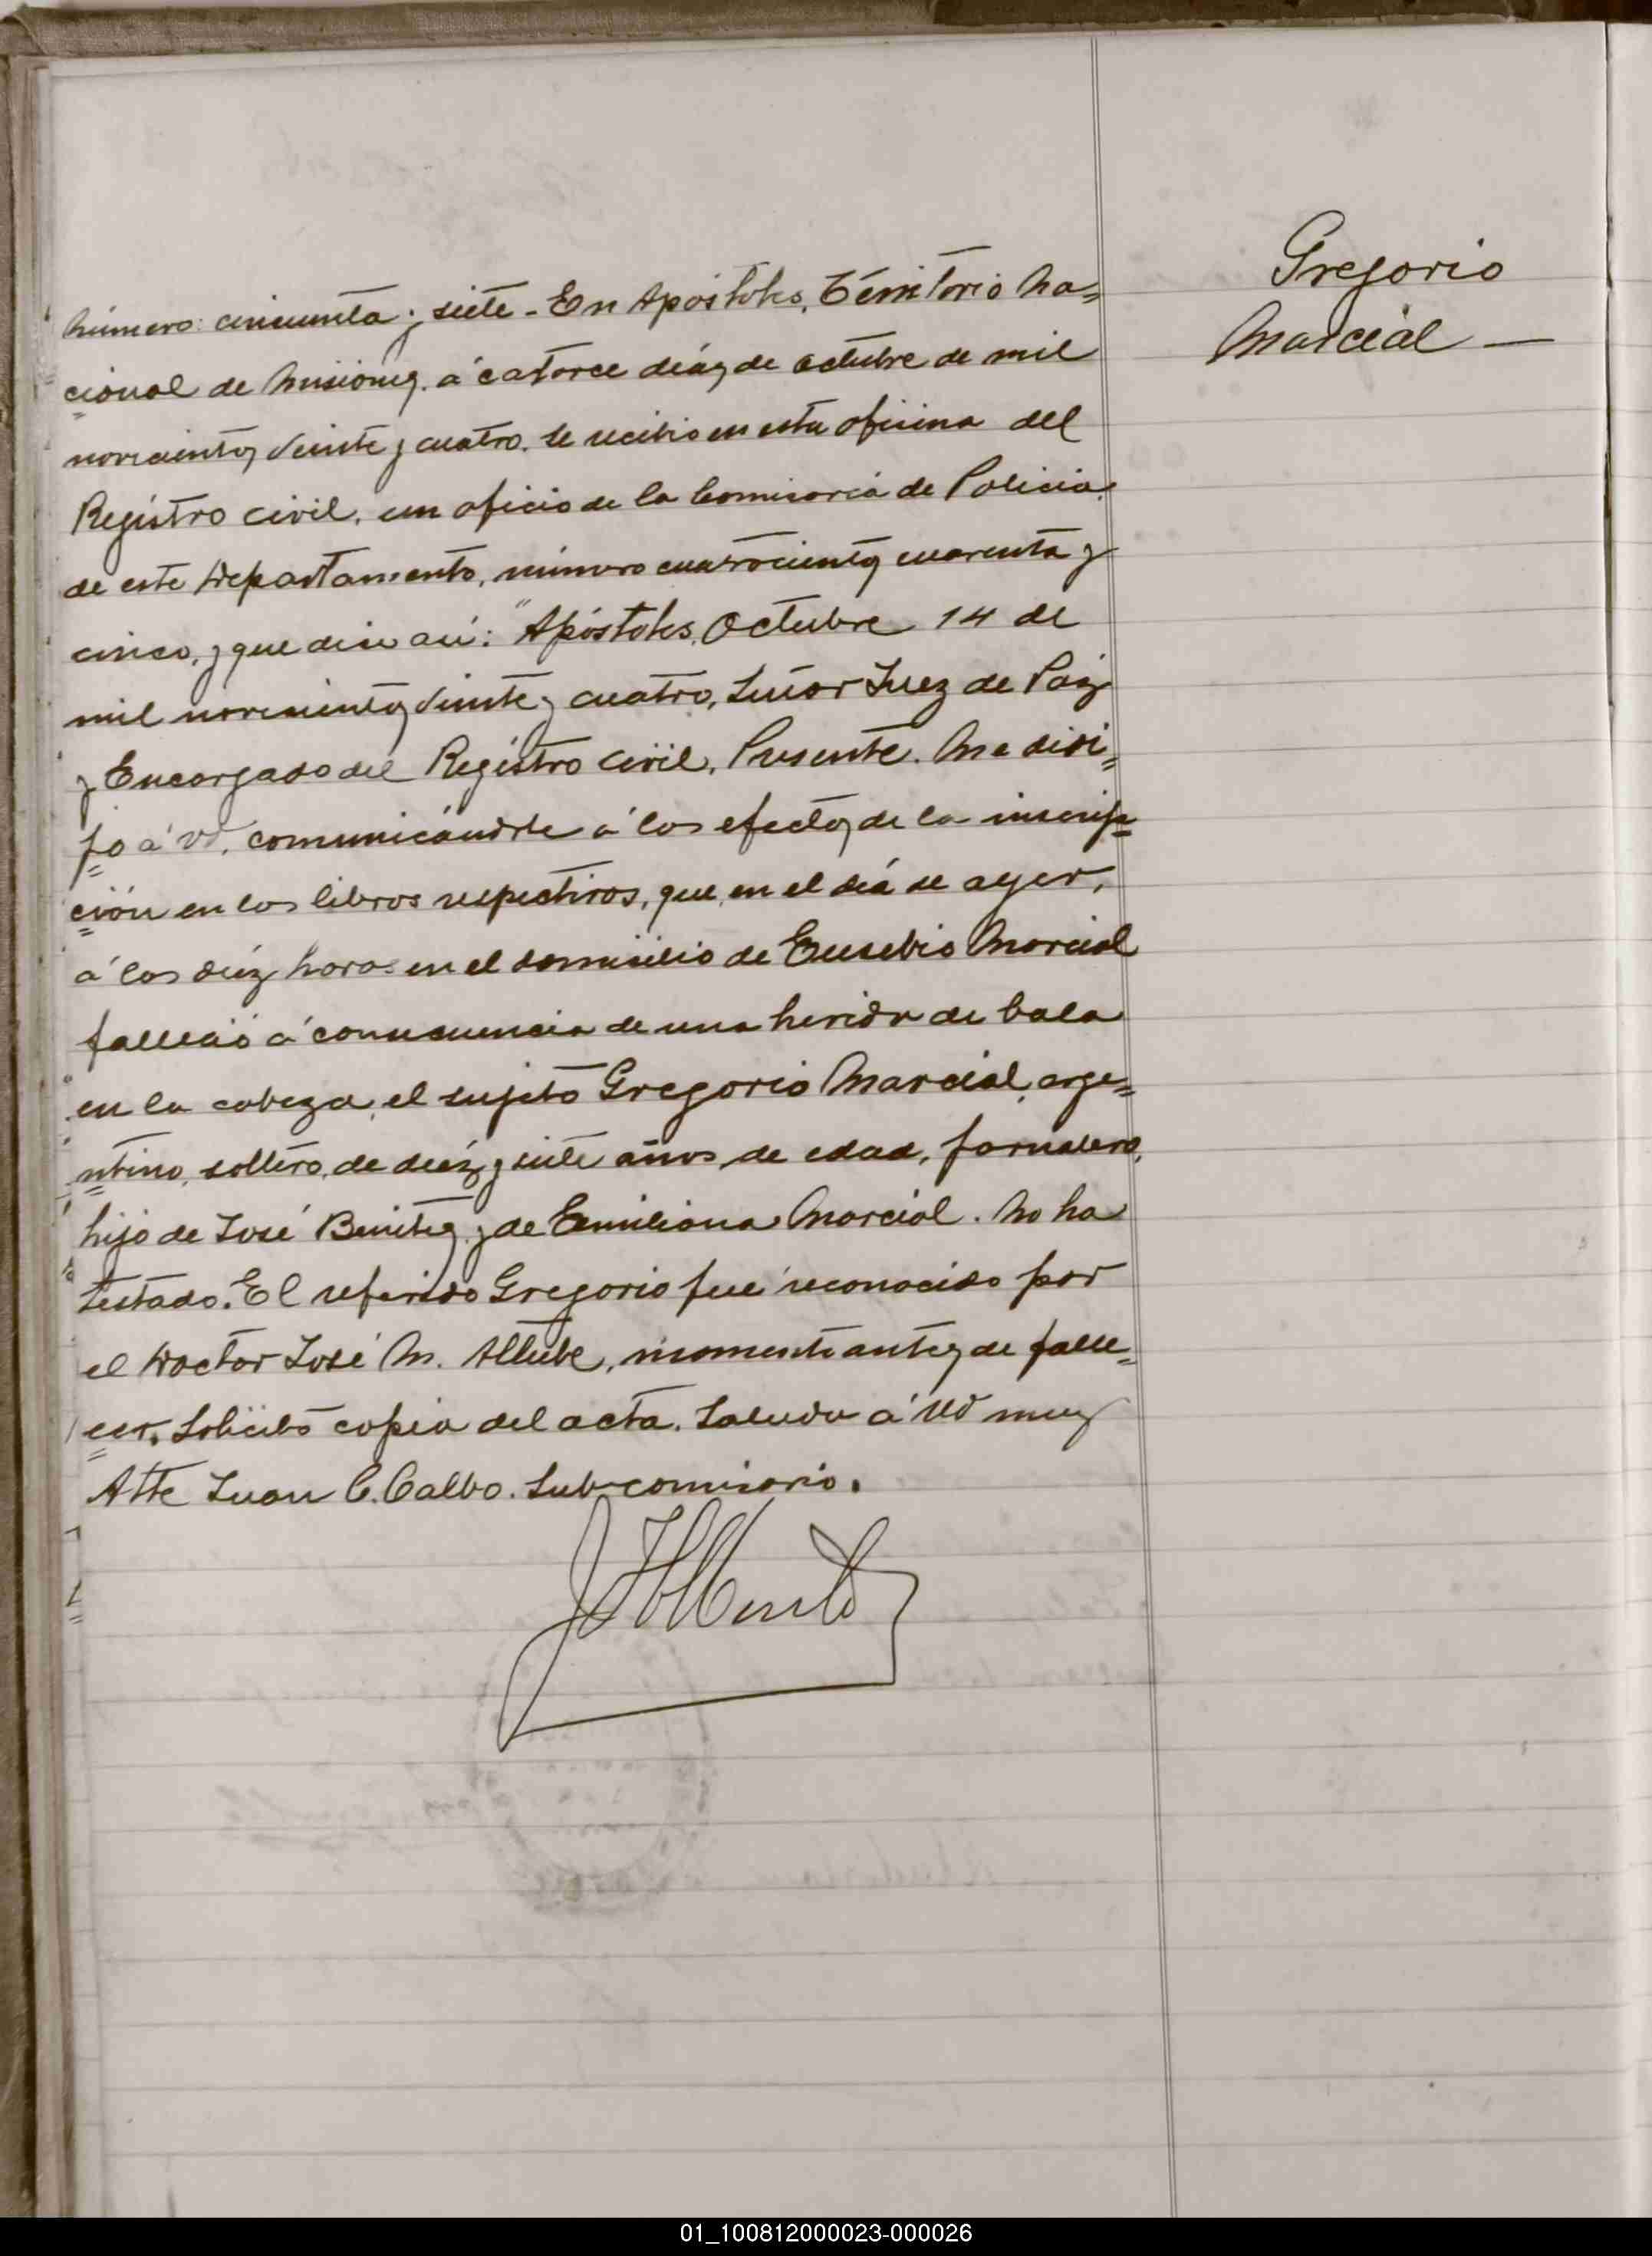 Gregorio
Marcial —
Número cincuenta y siete - En Apóstoles, Territorio Na=
cional de Misiones, á catorce días de Octubre de mil
novecientos veinte y cuatro, se recibio en esta oficina del
Registro civil, un oficio de la Comisaría de Policia
de este Departamento, número cuatrocientos cuarenta y
cinco, y que dice así: "Apóstoles, Octubre 14 de
mil novecientos veinte y cuatro, Señor Juez de Paz
y Encargado del Registro Civil, Presente. Me diri=
jo á Vd. comunicándole á los efectos de la inscrip=
ción en los libros respectivos, que en el día de ayer,
á las diéz horas en el domicilio de Eusebio Marcial
falleció á consecuencia de una herida de bala
en la cabeza, el sujeto Gregorio Marcial, arge=
ntino, soltero, de diéz y siete años de edad, jornalero,
hijo de José Benitez y de Emiliana Marcial. No ha
testado. El referido Gregorio fué reconocido por
el Doctor José M. Altube, momentos antes de falle=
cer. Solicito copia del acta. Saluda á Ud muy
Atte Juan C. Calvo. Sub-comisario.
01_100812000023-000026